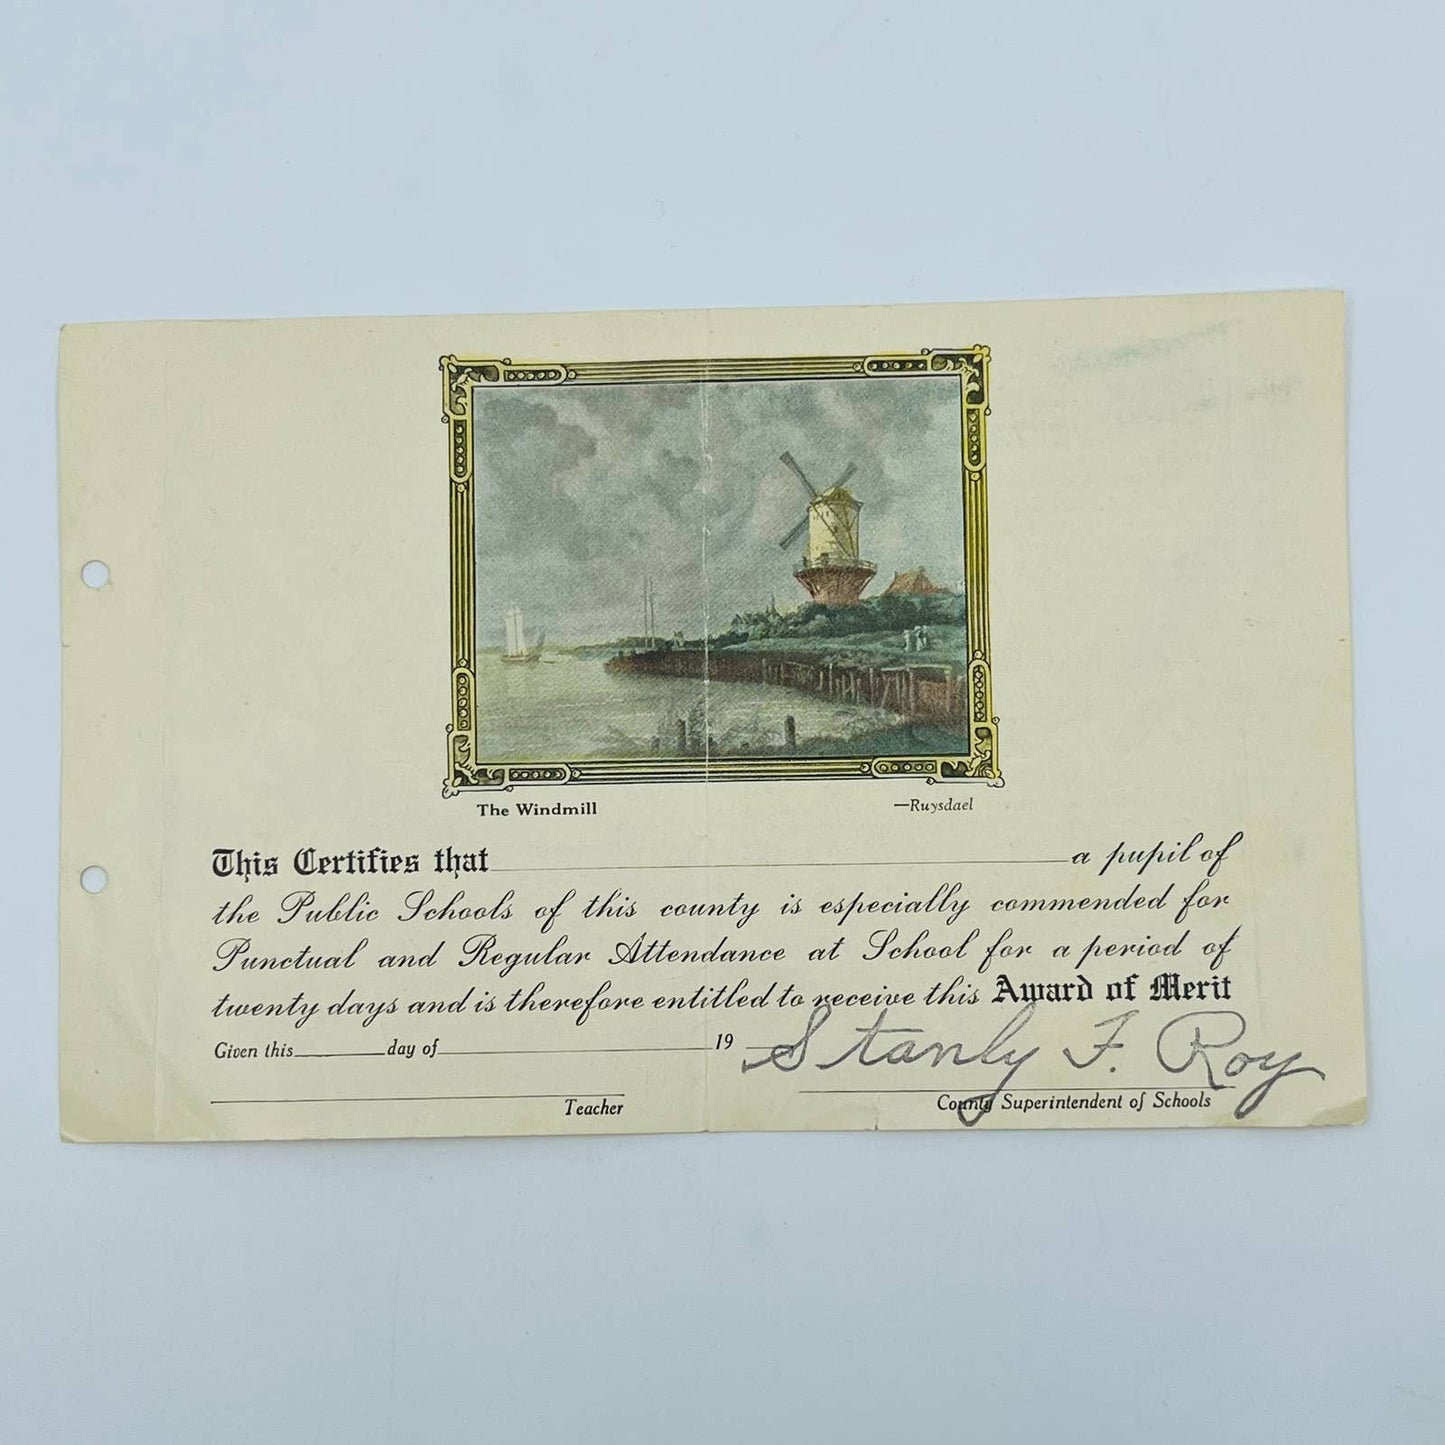 The Windmill —Ruysdael
This Certifies that a pupil of
the Public Schools of this county is especially commended for
Punctual and Regular Attendance at School for a period of
twenty days and is therefore entitled to receive this Award of Merit
Given this day of 19 Stanly F. Roy
Teacher County Superintendent of Schools